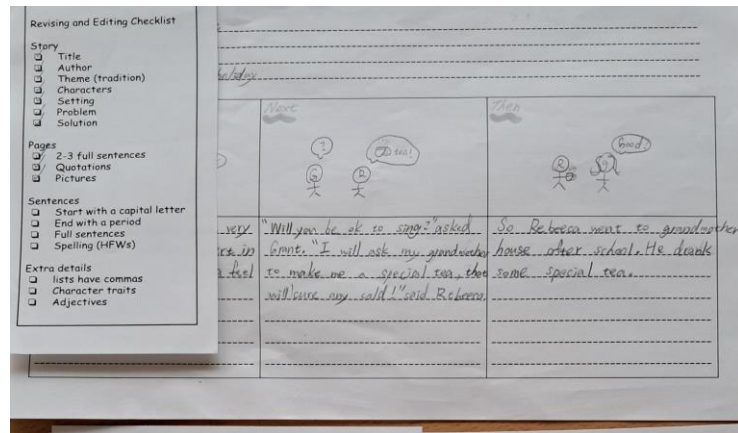 Revising and Editing Checklist
Story
Title
Author
Theme (tradition)
Characters
Setting
Problem
Solution
Pages
2-3 full sentences
Quotations
Pictures
Sentences
Start with a capital letter
End with a period
Full sentences
Spelling (HFWs)
Extra details
lists have commas
Character traits
Adjectives
very
in
feel
Next
?
tea!
G
R
"Will you be ok to sing?" asked
Grant. "I will ask my grandmother
to make me a special tea, that
will cure my cold!" said Rebeeca.
Then
Good?
R
g
So Rebeeca went to grandmother
house after school. He drank
some special tea.